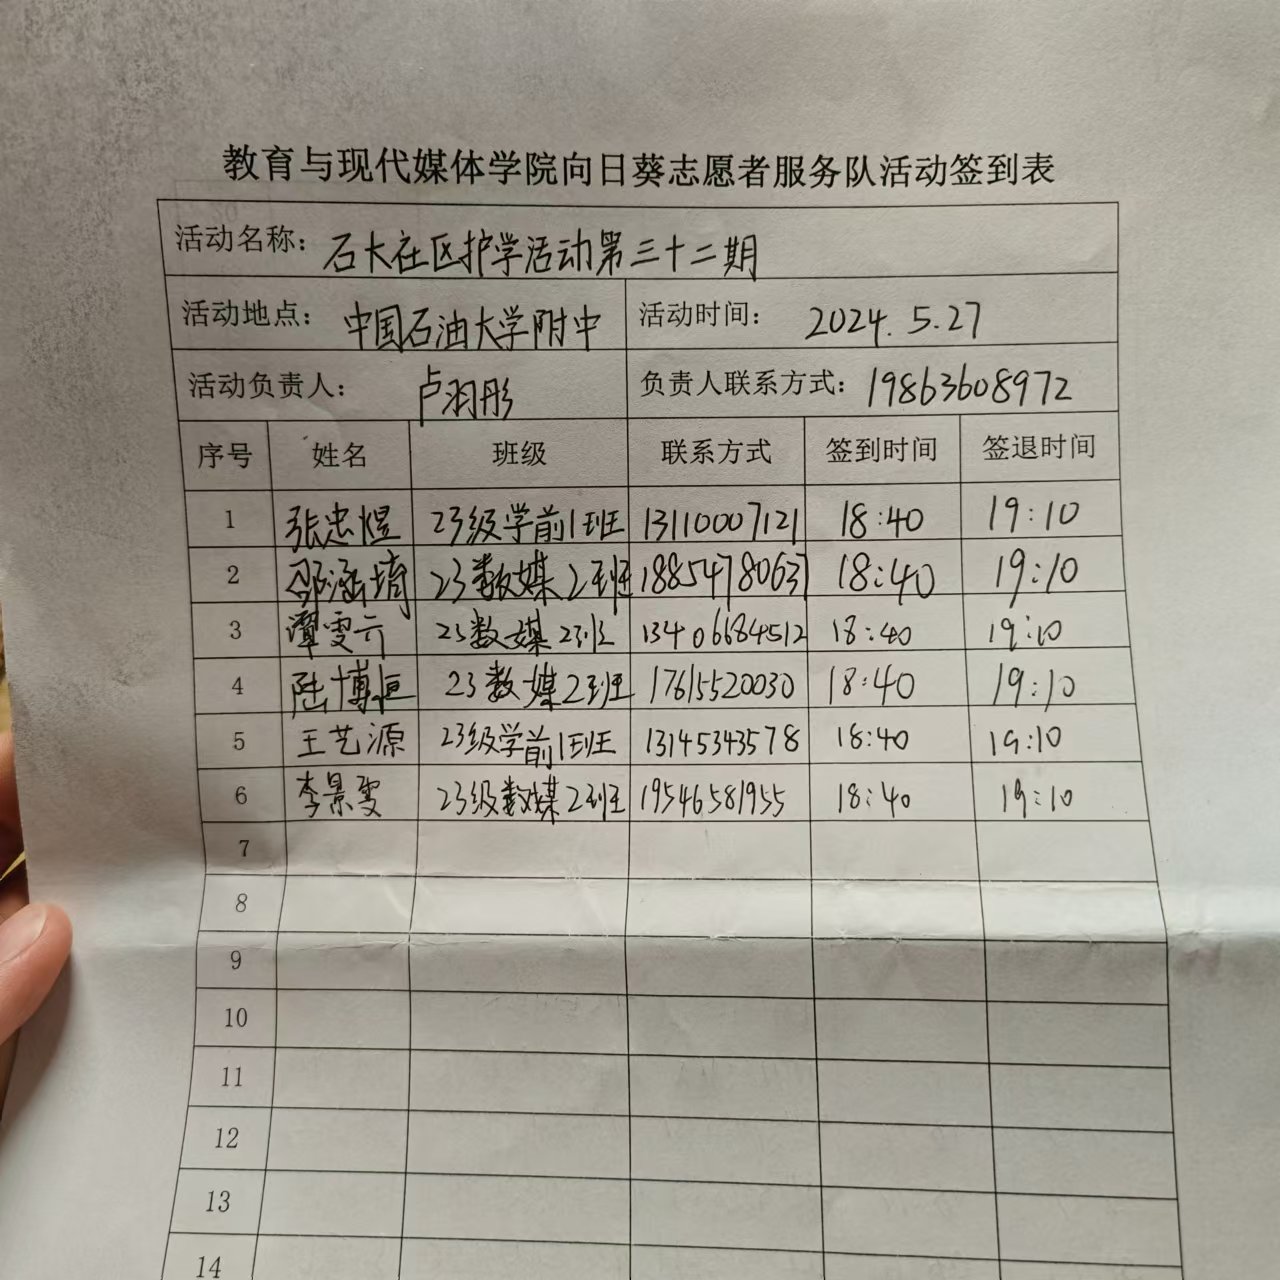 教育与现代媒体学院向日葵志愿者服务队活动签到表
活动名称：石大社区护学活动第三十二期
活动地点：中国石油大学附中 活动时间：2024.5.27
活动负责人：卢羽彤 负责人联系方式：19863608972
序号 姓名 班级 联系方式 签到时间 签退时间
1 张忠煜 23级学前1班 13110007121 18:40 19:10
2 邵涵埼 23数媒2班 18854780637 18:40 19:10
3 谭雯亓 23数媒2班 13406684512 18:40 19:10
4 陆博恒 23数媒2班 17615520030 18:40 19:10
5 王艺源 23级学前1班 13145343578 18:40 19:10
6 李景雯 23级数媒2班 19546581955 18:40 19:10
7
8
9
10
11
12
13
14